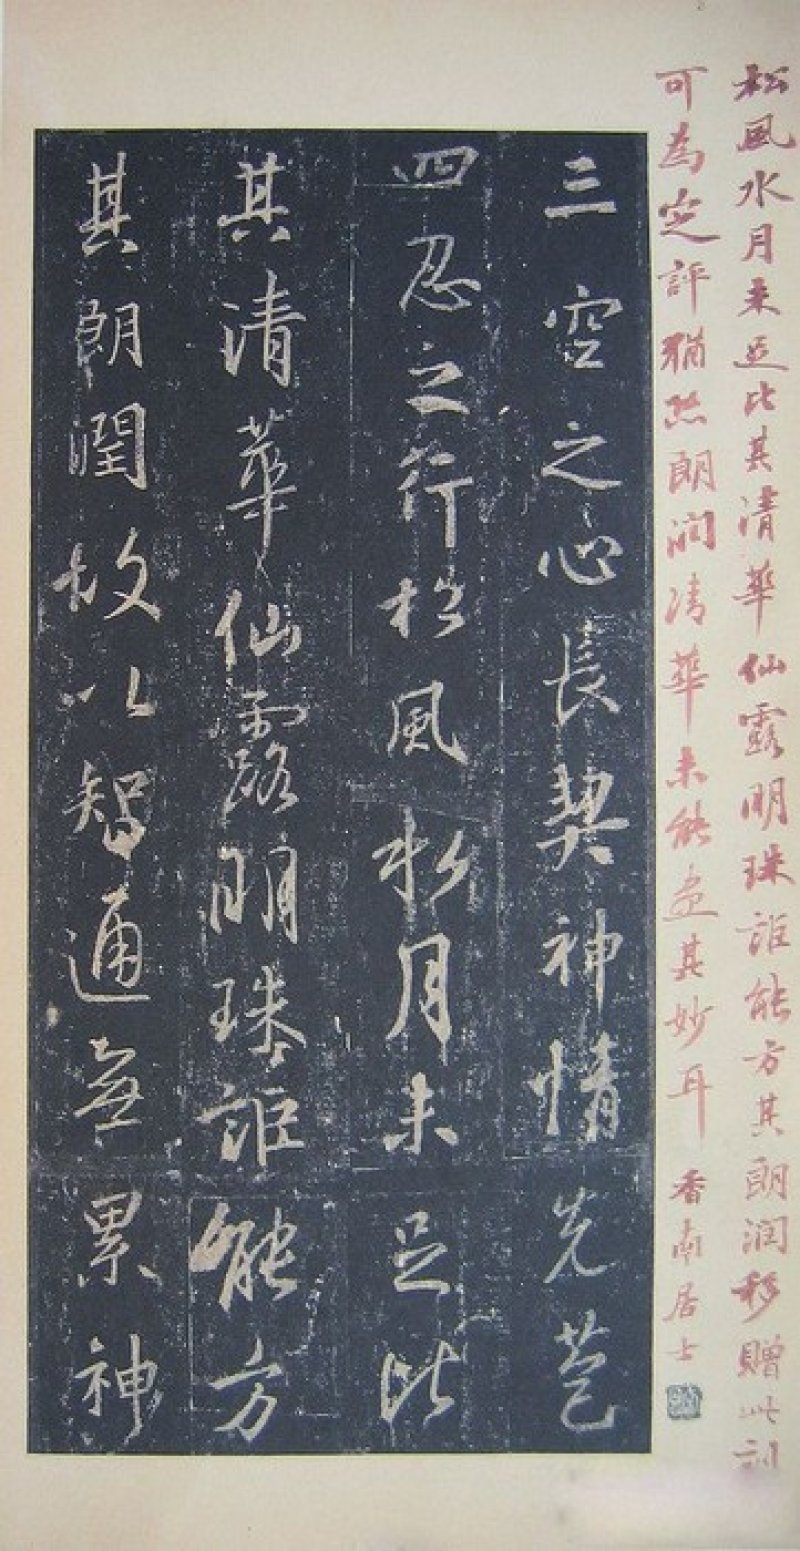 松風水月未足比其清華仙露明珠詎能方其朗潤移贈此刻
可為定評猶恐朗潤清華未能盡其妙耳 香南居士
三空之心長契神情先苞
四忍之行松風水月未足比
其清華仙露明珠詎能方
其朗潤故以智通無累神